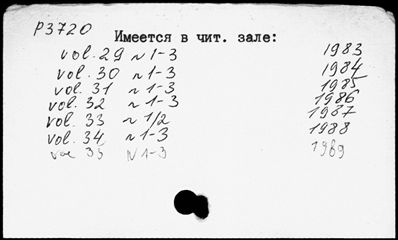 P3720
Имеется в чит. зале:
vol. 29 N 1-3 1983
vol. 30 N 1-3 1984
vol. 31 N 1-3 1985
vol. 32 N 1-3 1986
vol. 33 N 1/2 1987
vol. 34 N 1-3 1988
vol 35 N 1-3 1989